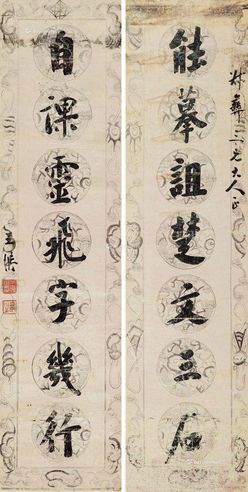 秝彝三兄大人正
能摹詛楚文三石
自課靈飛字幾行
王榘